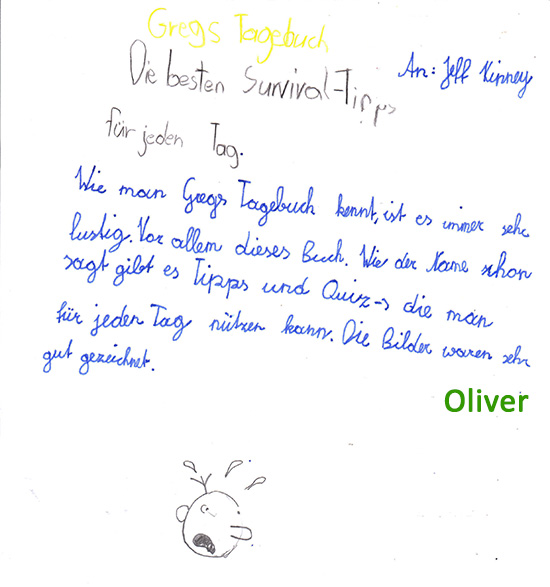 Gregs Tagebuch
Die besten Survival-Tipps
An: Jeff Kinney
für jeden Tag.
Wie man Gregs Tagebuch kennt, ist es immer sehr
lustig. Vor allem dieses Buch. Wie der Name schon
sagt gibt es Tipps und Quiz-s die man
für jeden Tag nützen kann. Die Bilder waren sehr
gut gezeichnet.
Oliver